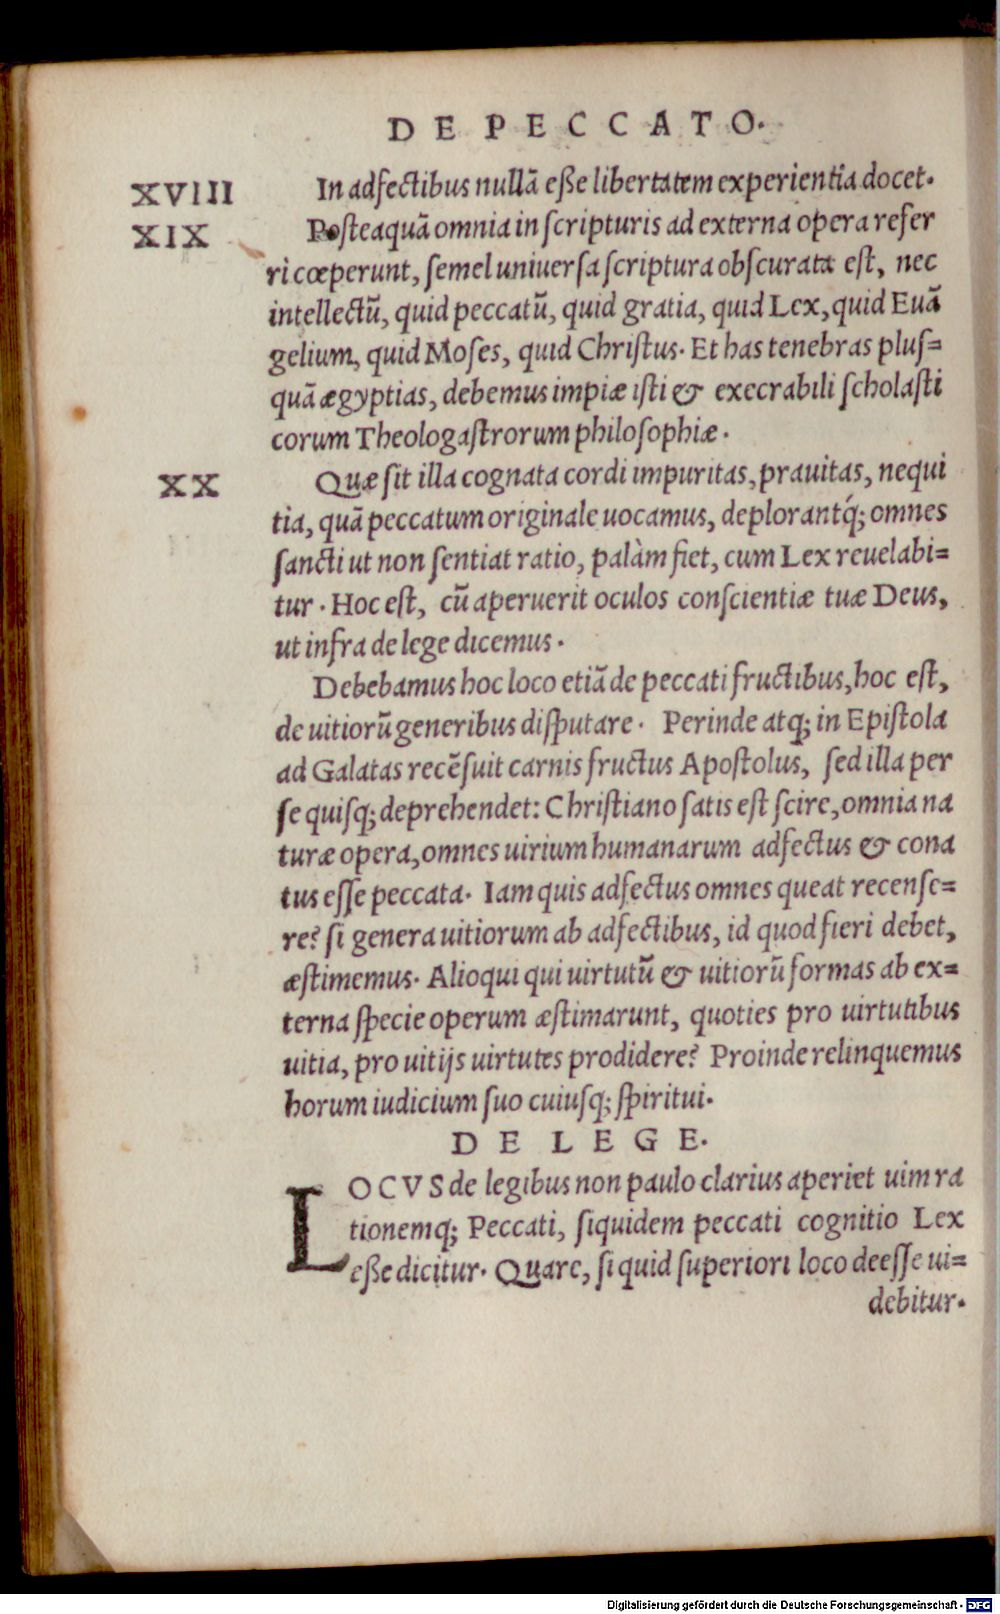 DE PECCATO.
XVIII In adfectibus nullā eſſe libertatem experientia docet.
XIX Poſteaquā omnia in ſcripturis ad externa opera refer
ri cœperunt, ſemel uniuerſa ſcriptura obſcurata eſt, nec
intellectū, quid peccatū, quid gratia, quid Lex, quid Euā
gelium, quid Moſes, quid Chriſtus. Et has tenebras pluſ=
quā ægyptias, debemus impiæ iſti & execrabili ſcholaſti
corum Theologaſtrorum philoſophiæ.
XX Quæ ſit illa cognata cordi impuritas, prauitas, nequi
tia, quā peccatum originale uocamus, deplorantq́; omnes
ſancti ut non ſentiat ratio, palàm fiet, cum Lex reuelabi=
tur. Hoc eſt, cū aperuerit oculos conſcientiæ tuæ Deus,
ut infra de lege dicemus.
Debebamus hoc loco etiā de peccati fructibus, hoc eſt,
de uitiorū generibus diſputare. Perinde atq; in Epiſtola
ad Galatas recēſuit carnis fructus Apoſtolus, ſed illa per
ſe quiſq; deprehendet: Chriſtiano ſatis eſt ſcire, omnia na
turæ opera, omnes uirium humanarum adfectus & cona
tus eſſe peccata. Iam quis adfectus omnes queat recenſe=
re? ſi genera uitiorum ab adfectibus, id quod fieri debet,
æſtimemus. Alioqui qui uirtutū & uitiorū formas ab ex=
terna ſpecie operum æſtimarunt, quoties pro uirtutibus
uitia, pro uitijs uirtutes prodidere? Proinde relinquemus
horum iudicium ſuo cuiuſq; ſpiritui.
DE LEGE.
LOCVS de legibus non paulo clarius aperiet uim ra
tionemq; Peccati, ſiquidem peccati cognitio Lex
eſſe dicitur. Quare, ſi quid ſuperiori loco deeſſe ui=
debitur.
Digitalisierung gefördert durch die Deutsche Forschungsgemeinschaft - DFG